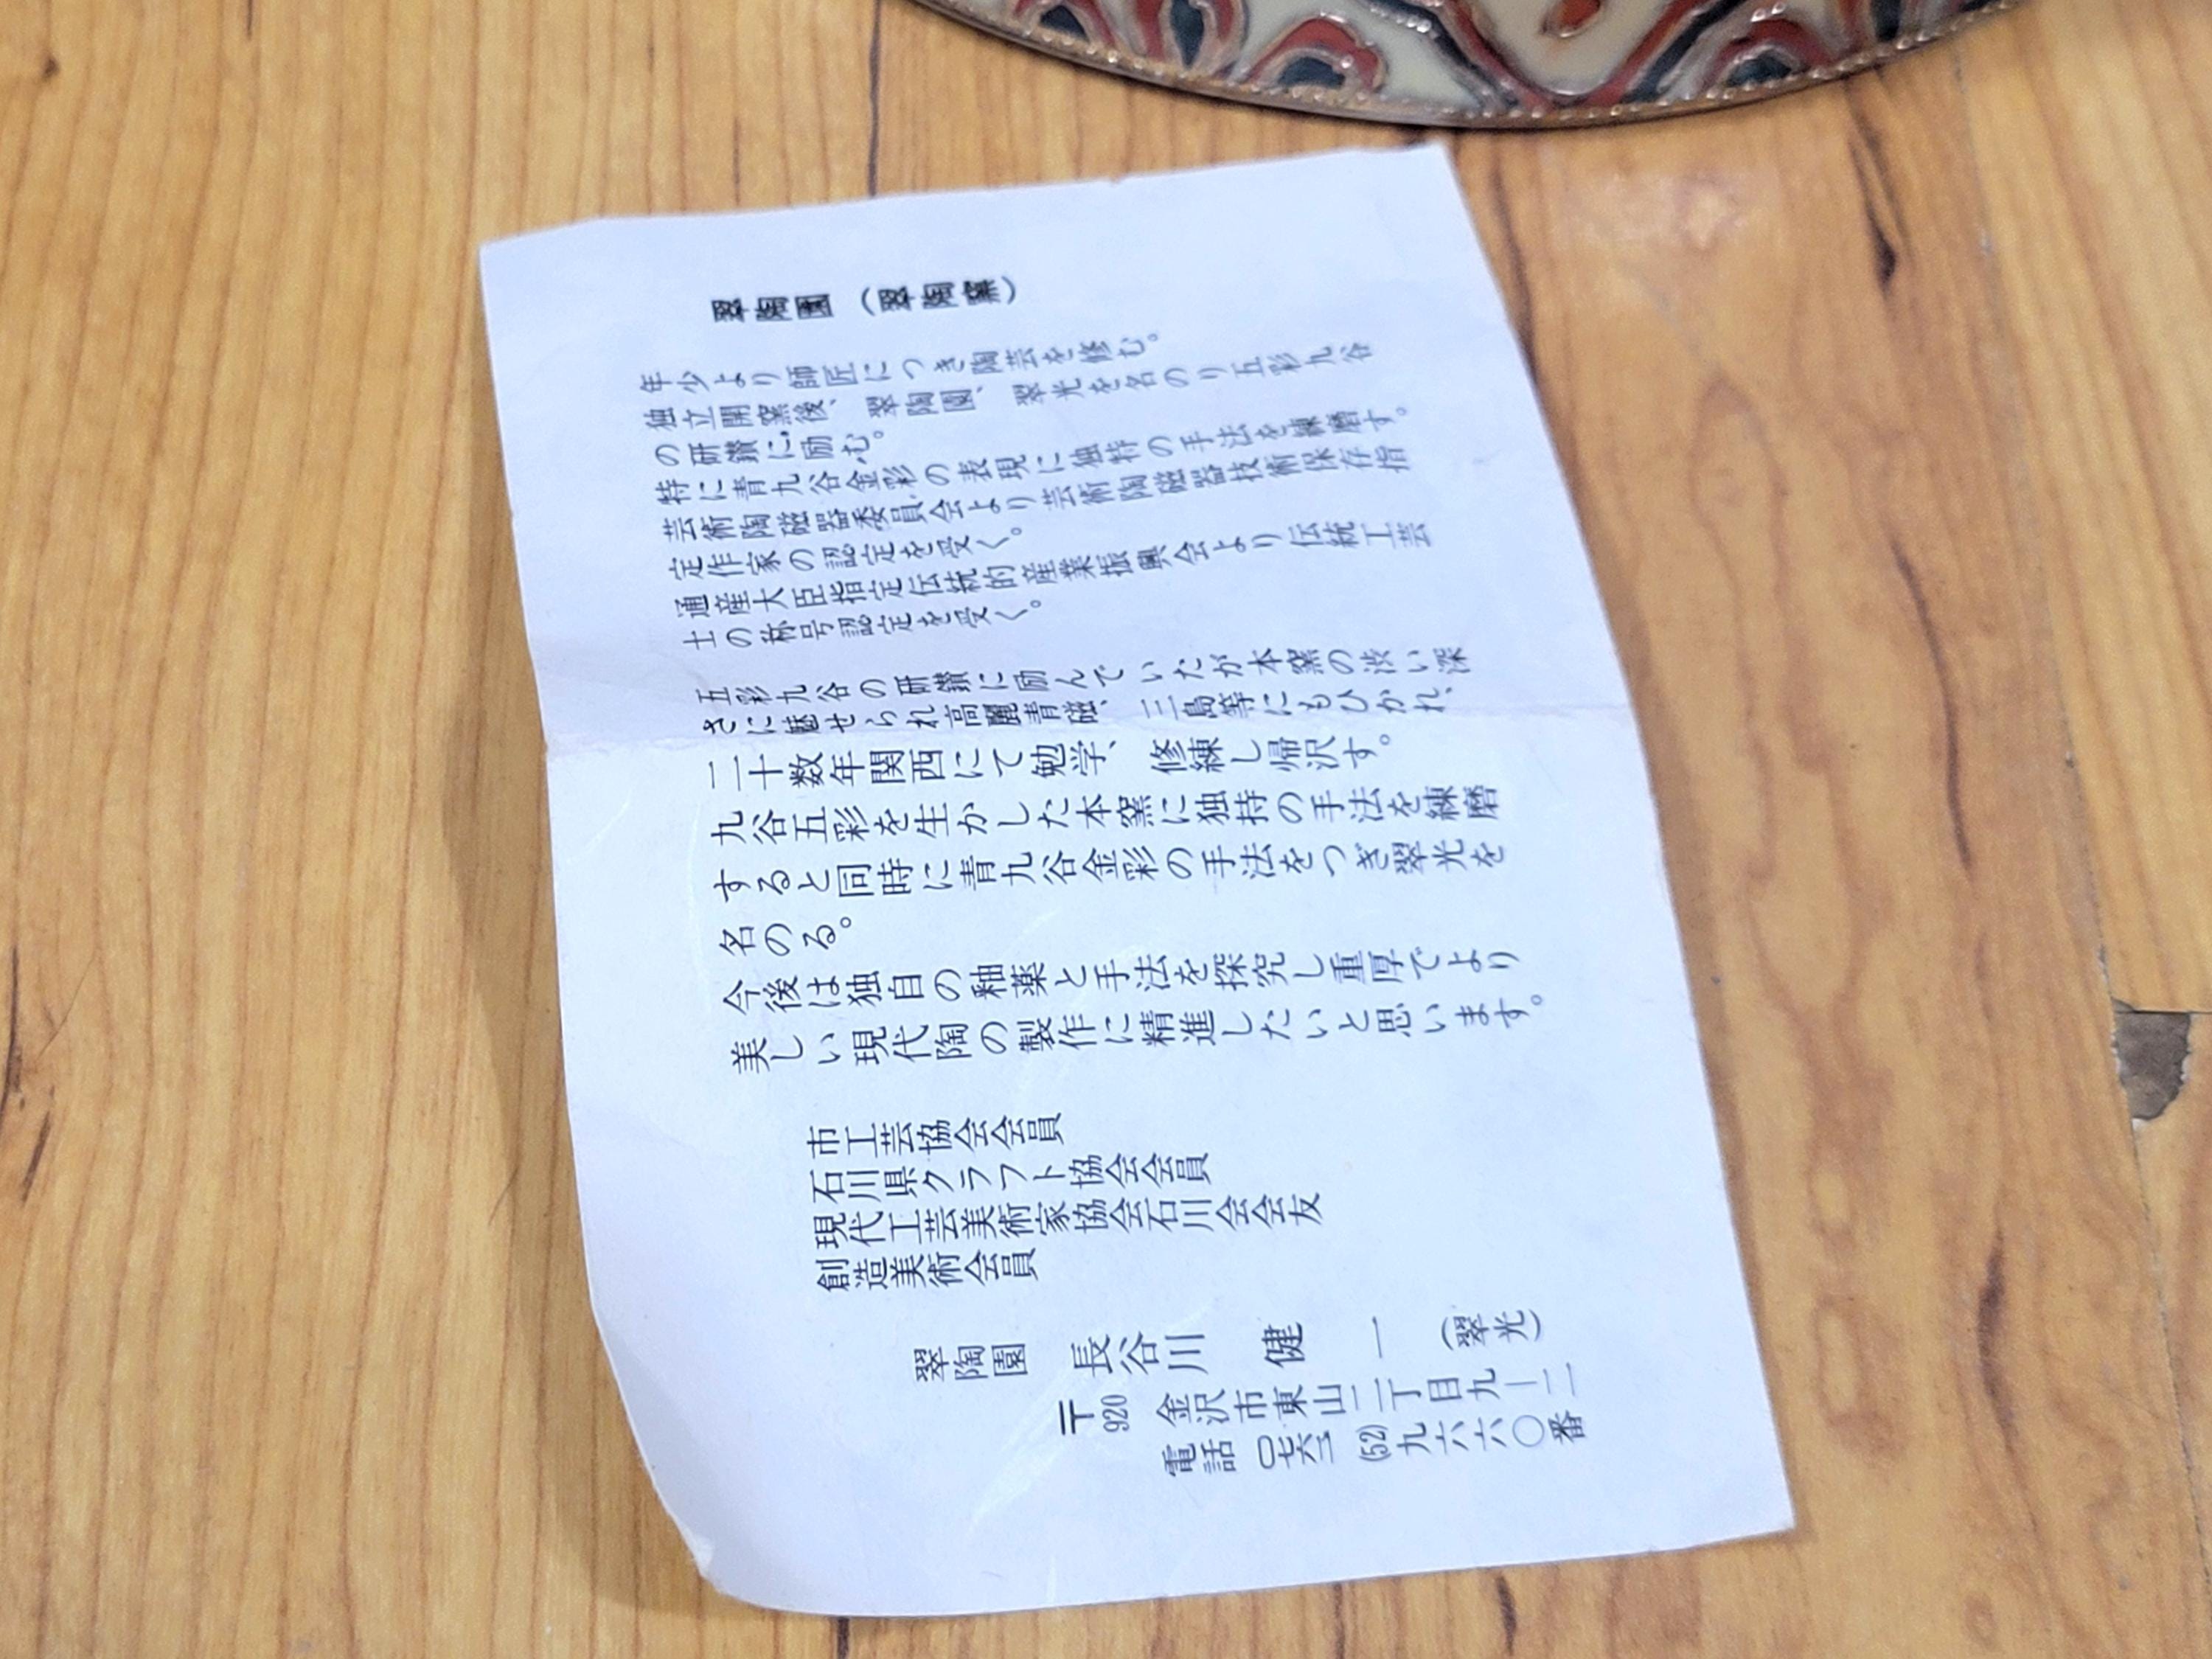 翠陶園（翠陶窯）
年少より師匠につき陶芸を修む。
独立開窯後、翠陶園、翠光を名のり五彩九谷
の研鑽に励む。
特に青九谷金彩の表現に独特の手法を練磨す。
芸術陶磁器委員会より芸術陶磁器技術保存指
定作家の認定を受く。
通産大臣指定伝統的産業振興会より伝統工芸
士の称号認定を受く。
五彩九谷の研鑽に励んでいたが本窯の渋い深
さに魅せられ高麗青磁、三島等にもひかれ、
二十数年関西にて勉学、修練し帰沢す。
九谷五彩を生かした本窯に独持の手法を練磨
すると同時に青九谷金彩の手法をつぎ翠光を
名のる。
今後は独自の釉薬と手法を探究し重厚でより
美しい現代陶の製作に精進したいと思います。
市工芸協会会員
石川県クラフト協会会員
現代工芸美術家協会石川会会友
創造美術会員
翠陶園 長谷川 健一（翠光）
〒920 金沢市東山二丁目九ー二
電話 〇七六二 (52) 九六六〇番